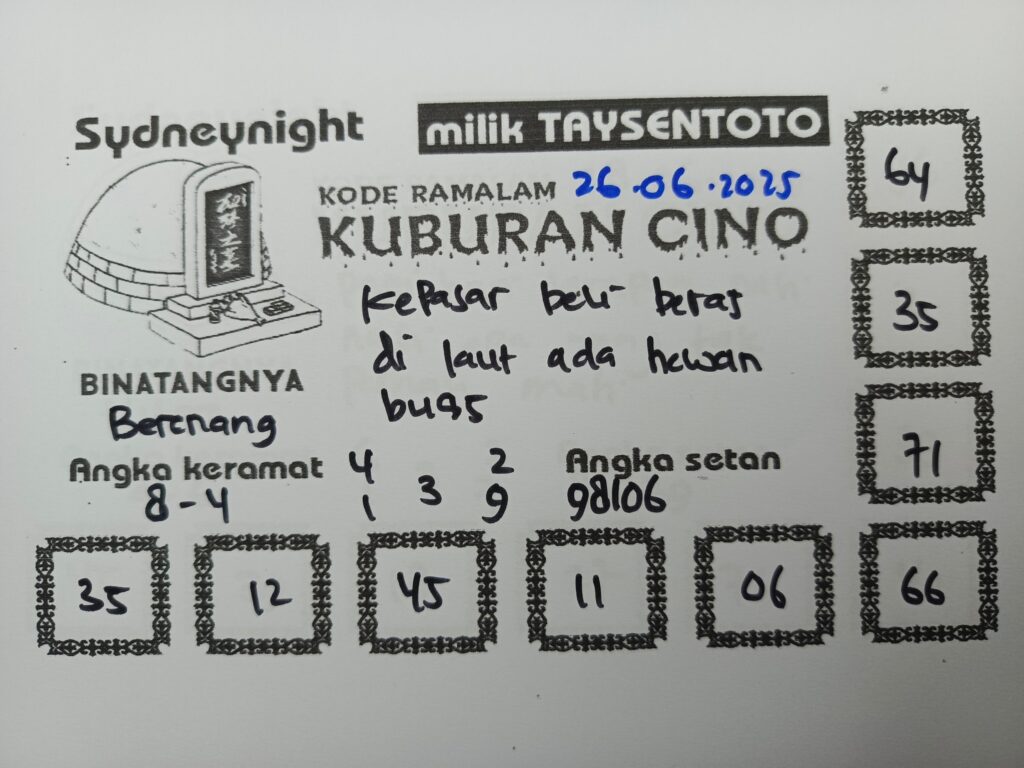 Sydneynight
milik TAYSENTOTO
64
KODE RAMALAM 26.06.2025
KUBURAN CINO
kepasar beli beras
35
di laut ada hewan
BINATANGNYA
buas
Berenang
71
Angka keramat
4 2
Angka setan
8-4
1 3 9
98106
35 12 45 11 06 66